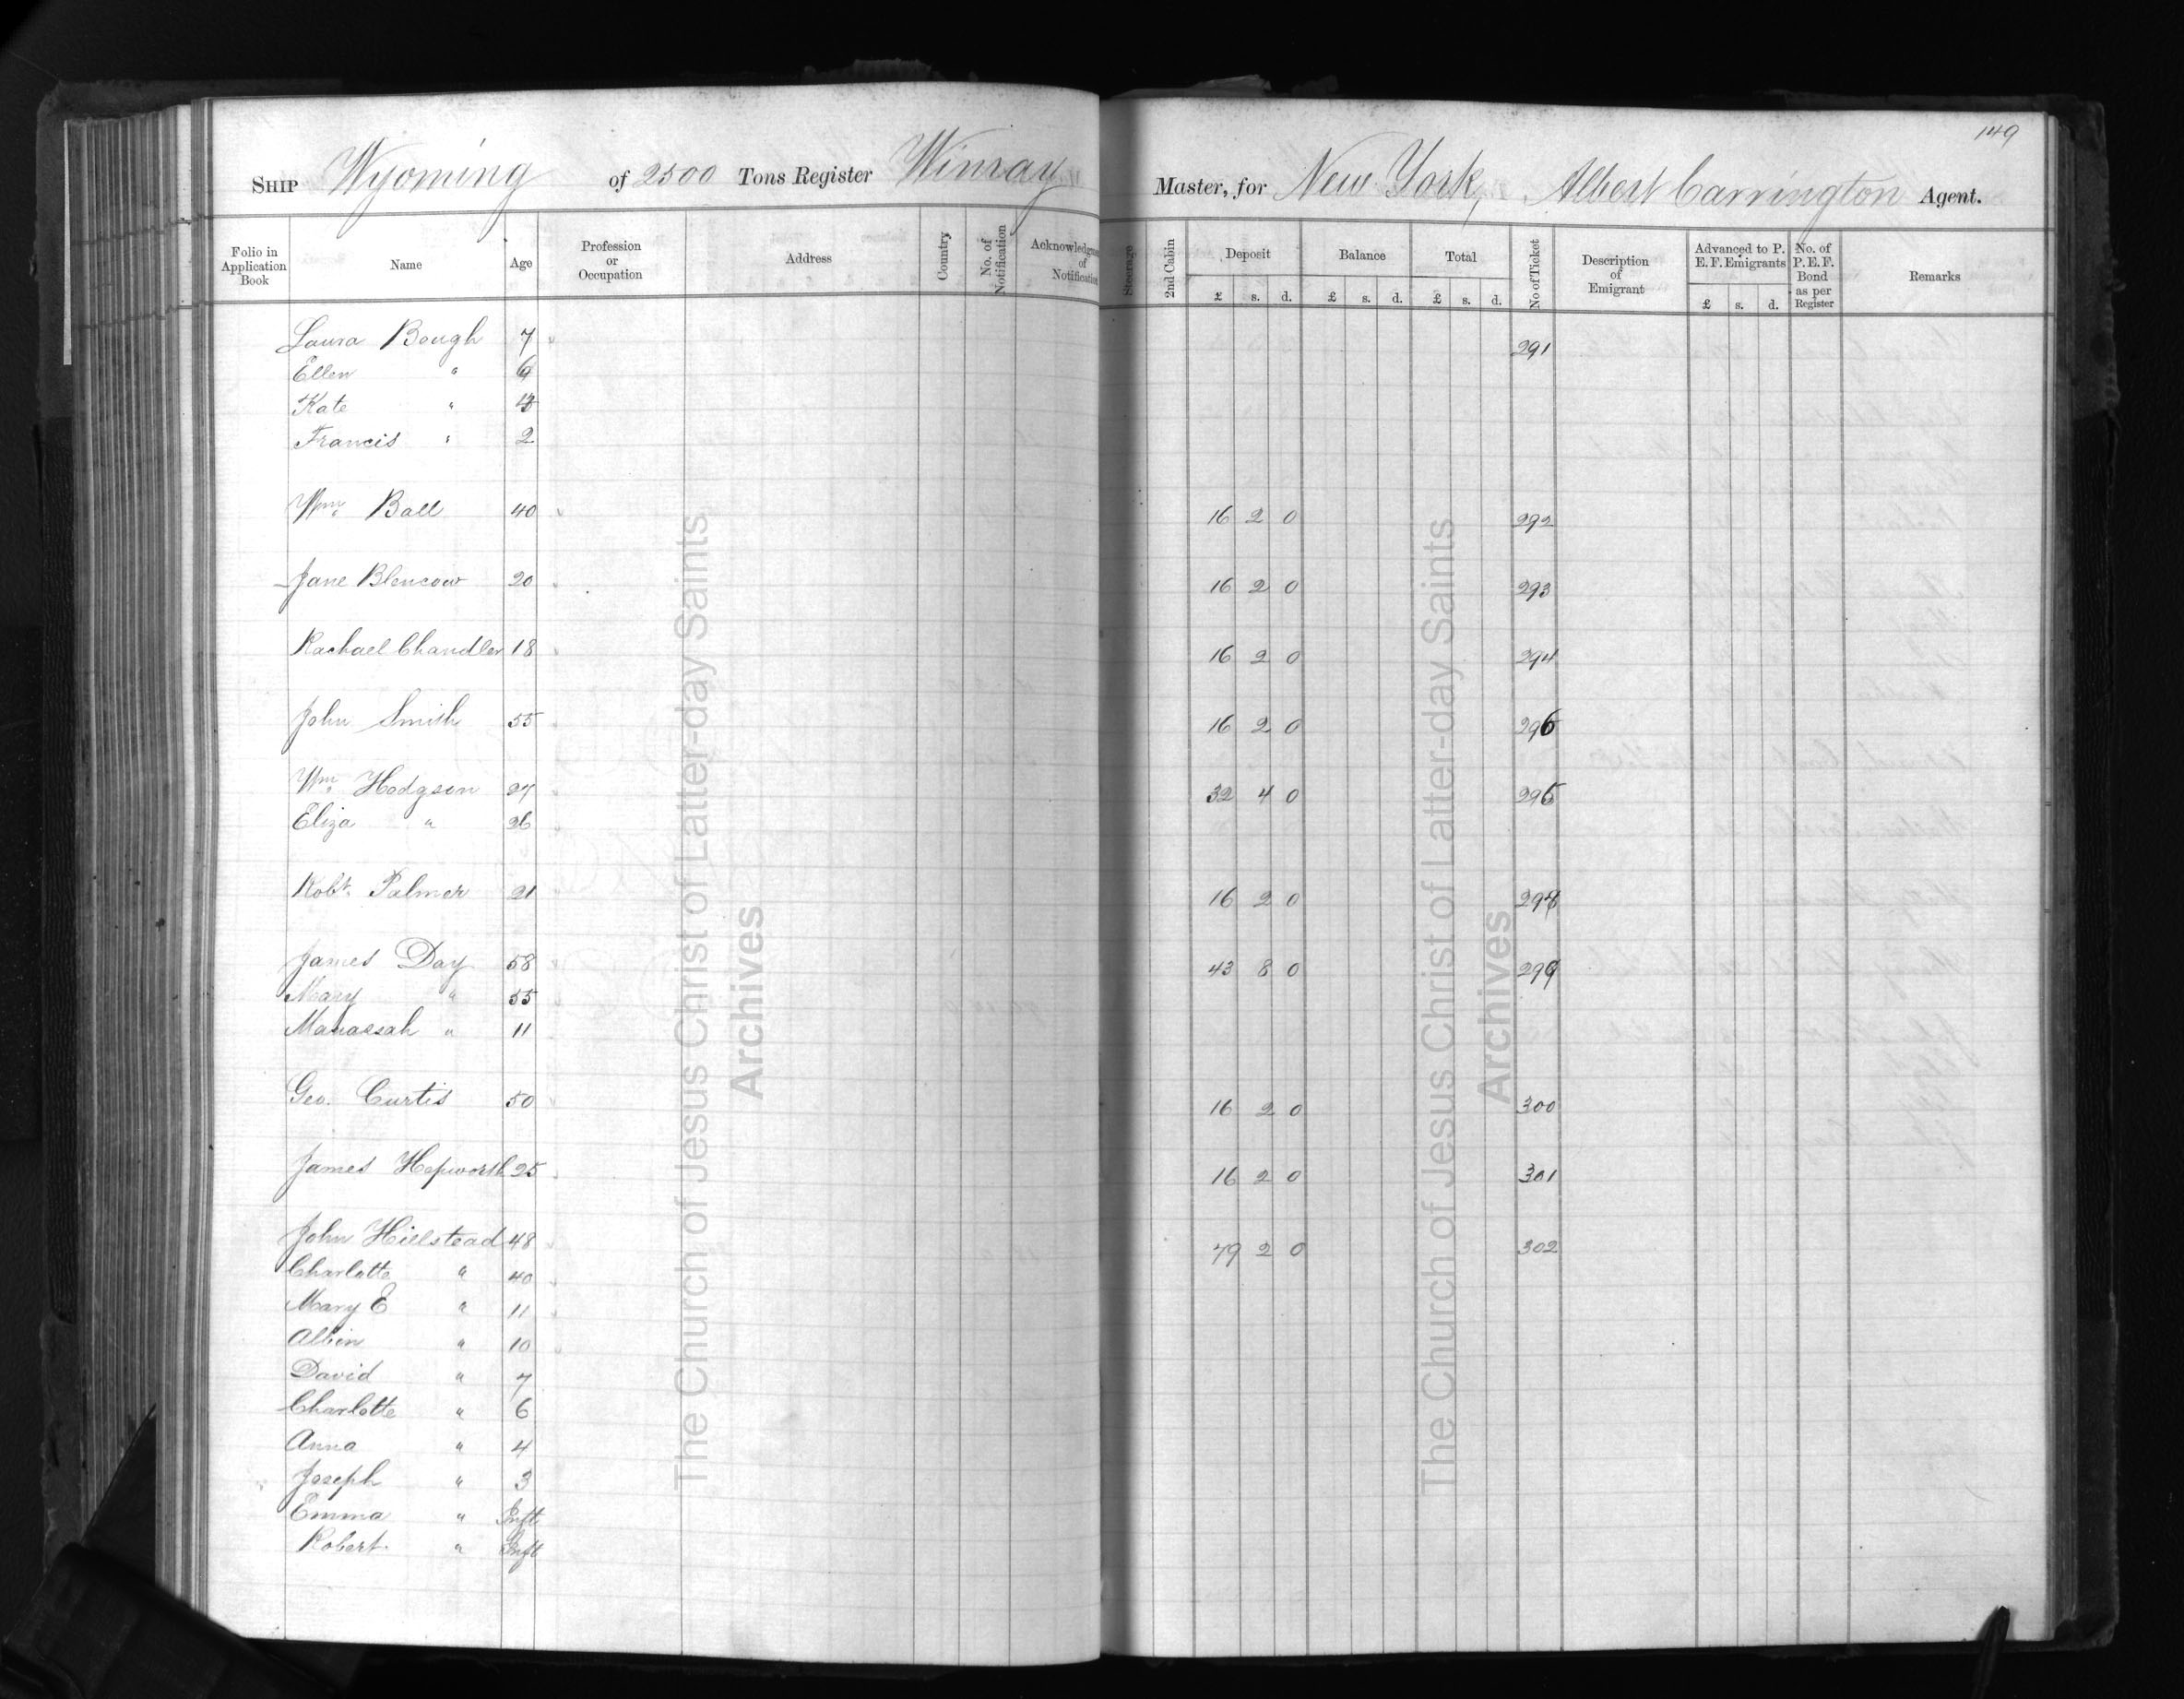 149
SHIP Wyoming of 2500 Tons Register Winray Master, for New York, Albert Carrington Agent.
Folio in Application Book Name Age Profession or Occupation Address Country No. of Notification Acknowledgment of Notification Steerage 2nd Cabin Deposit £ s. d. Balance £ s. d. Total £ s. d. No of Ticket Description of Emigrant Advanced to P. E. F. Emigrants £ s. d. No. of P. E. F. Bond as per Register Remarks
Laura Bough 7 291
Ellen "
Kate "
Francis " 2
Wm. Ball 40 16 2 0 292
Jane Blencow 20 16 2 0 293
Rachael Chandler 18 16 2 0 294
John Smith 55 16 2 0 296
Wm. Hodgson 27 32 4 0 295
Eliza " 26
Robt. Palmer 21 16 2 0 298
James Day 58 43 8 0 299
Mary " 55
Manassah " 11
Geo. Curtis 50 16 2 0 300
James Hepworth 25 16 2 0 301
John Hillstead 48 79 2 0 302
Charlotte " 40
Mary E " 11
Albin " 10
David " 7
Charlotte " 6
Anna " 4
Joseph " 3
Emma " Inft
Robert " Inft
The Church of Jesus Christ of Latter-day Saints
Archives
The Church of Jesus Christ of Latter-day Saints
Archives